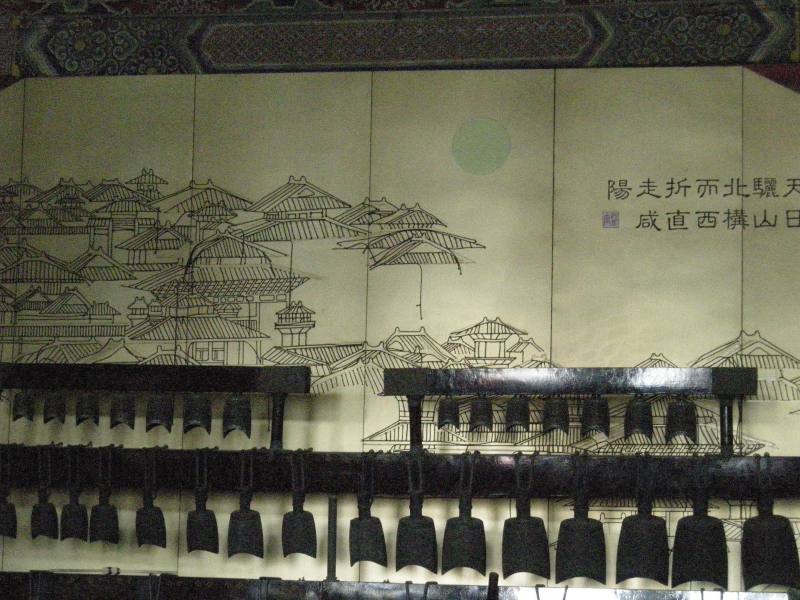 天日
驪山
北構
而西
折直
走咸
陽